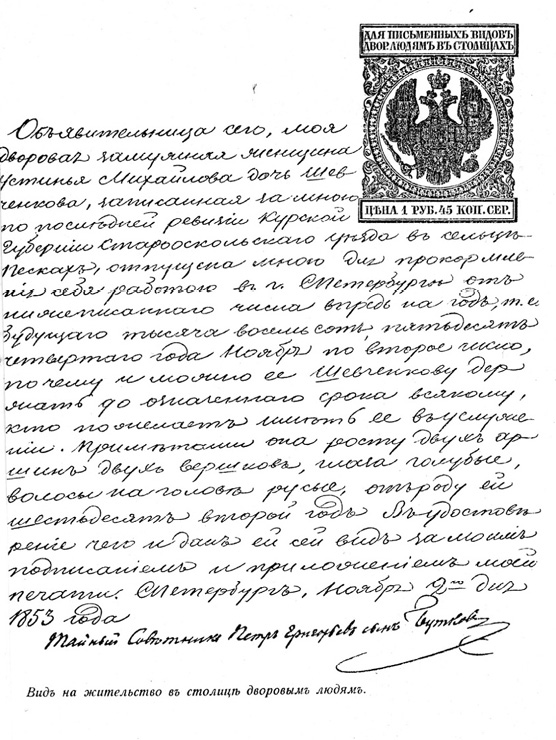 ДЛЯ ПИСЬМЕННЫХЪ ВИДОВЪ
ДВОР. ЛЮДЯМЪ ВЪ СТОЛИЦАХЪ
ЦѢНА 1 РУБ. 45 КОП. СЕР.
Объявительница сего, моя
дворовая замужняя женщина
Устинья Михайлова дочь Шев-
ченкова, записанная за мною
по последней ревизіи Курской
Губерніи Старооскольскаго уѣзда въ сельцѣ
Пескахъ, отпущена мною для прокормле-
нія себя работою въ г. СПетербургѣ отъ
нижеписаннаго числа впредь на годъ, т. е.
будущаго тысяча восемьсотъ пятьдесятъ
четвертаго года Ноября по второе число,
почему и можно ее Шевченкову дер-
жать до означеннаго срока всякому,
кто пожелаетъ имѣть ее въ услуже-
ніи. Примѣтами она росту двухъ ар-
шинъ двухъ вершковъ, глаза голубые,
волосы на головѣ русые, отъ роду ей
шестьдесятъ второй годъ. Въ удостовѣ-
реніе чего и данъ ей сей видъ за моимъ
подписаніемъ и приложеніемъ моей
печати. СПетербургъ, Ноября 2го дня
1853 года
Тайный Совѣтникъ Петръ Григорьевъ сынъ Бутковъ
Видъ на жительство въ столицѣ дворовымъ людямъ.